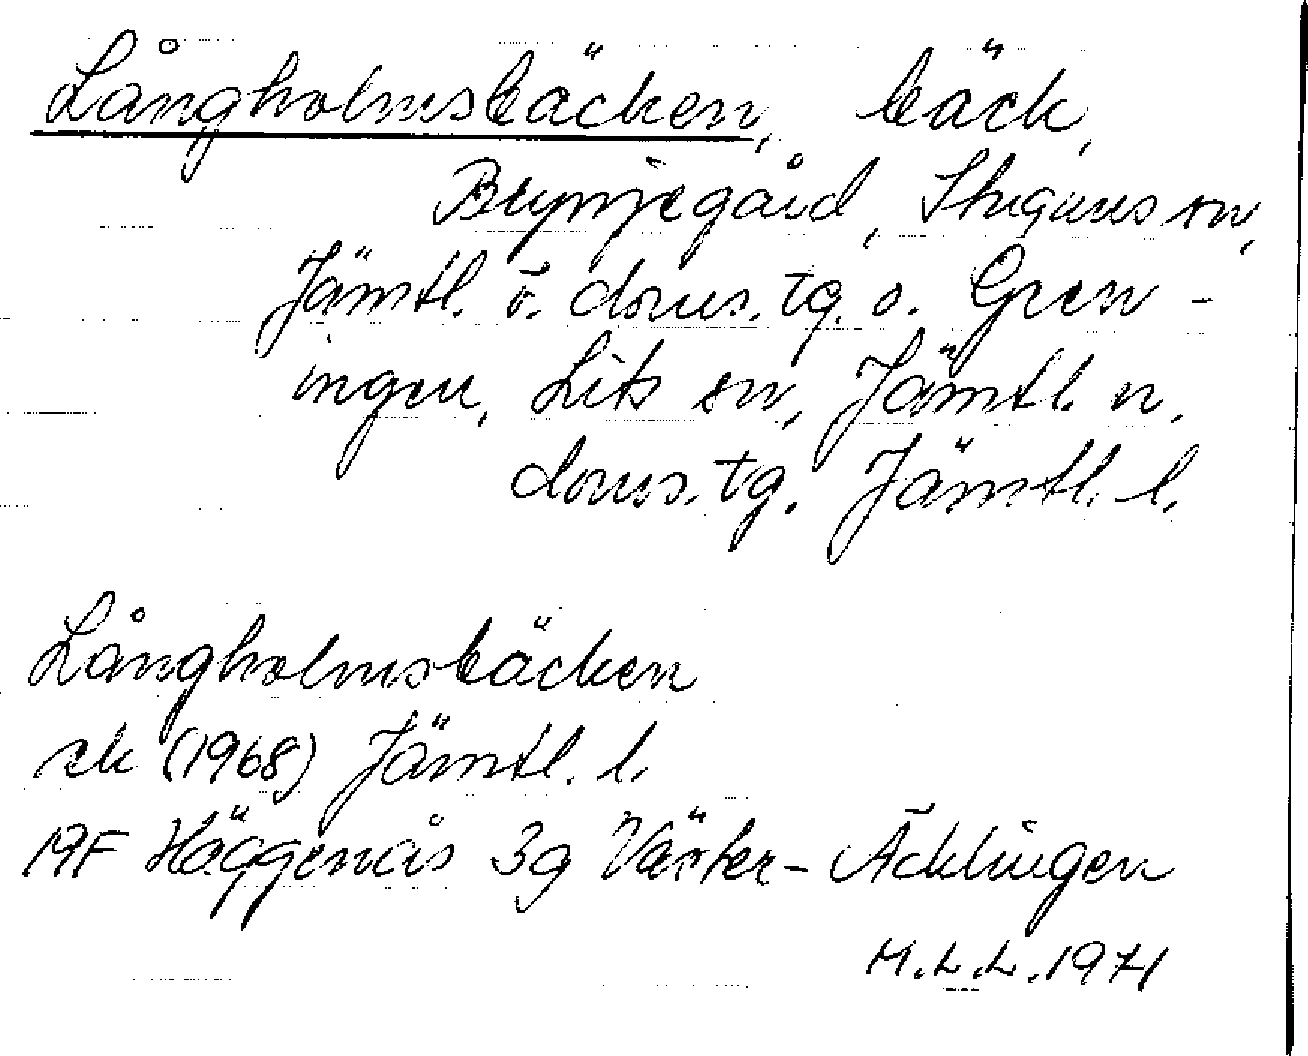 Långholmsbäcken, bäck,
Brynjegård, Stuguns sn,
Jämtl. ö. doms. tg. o. Gren-
ingen, Lits sn, Jämtl. n.
doms. tg. Jämtl. l.
Långholmsbäcken
ek (1968) Jämtl. l.
19F Häggenås 3g Väster-Äcklingen
M.L.L. 1971